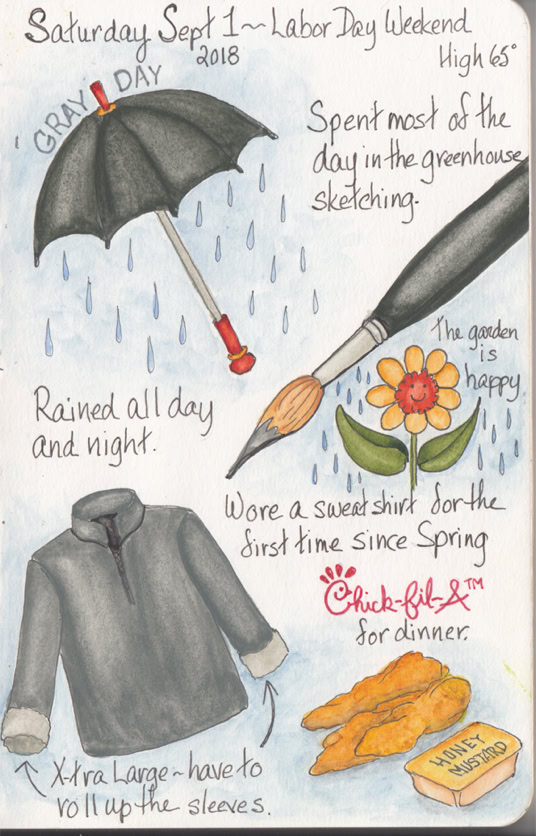 Saturday Sept 1~Labor Day Weekend
2018
High 65°
GRAY DAY
Spent most of the
day in the greenhouse
sketching.
The garden
is
happy
Rained all day
and night.
Wore a sweatshirt for the
first time since Spring
Chick-fil-A™
for dinner.
HONEY
MUSTARD
X-tra Large~have to
roll up the sleeves.